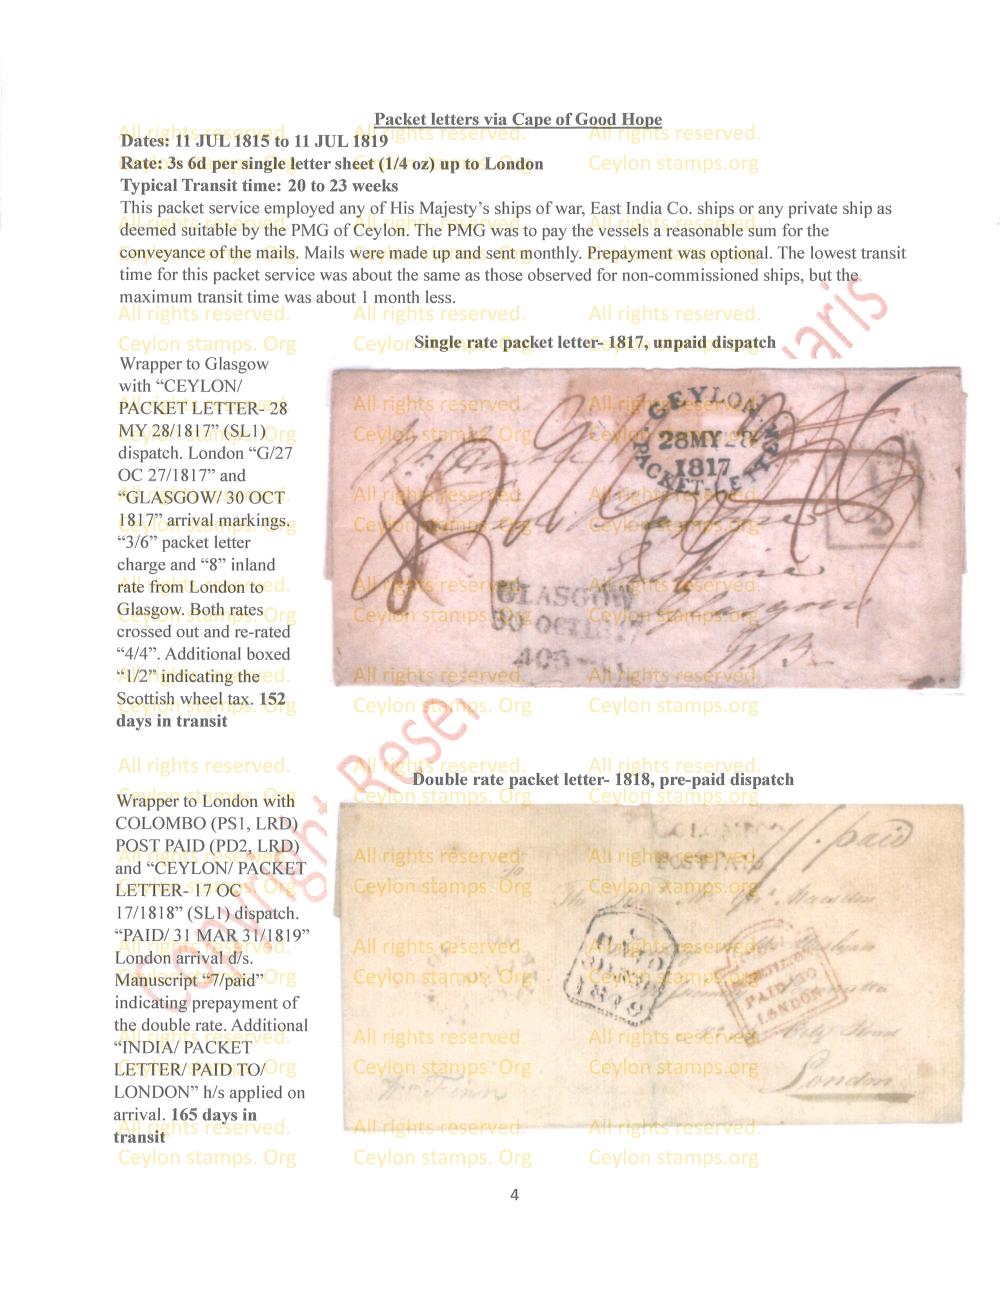 Packet letters via Cape of Good Hope
Dates: 11 JUL 1815 to 11 JUL 1819
Rate: 3s 6d per single letter sheet (1/4 oz) up to London
Typical Transit time: 20 to 23 weeks
This packet service employed any of His Majesty's ships of war, East India Co. ships or any private ship as
deemed suitable by the PMG of Ceylon. The PMG was to pay the vessels a reasonable sum for the
conveyance of the mails. Mails were made up and sent monthly. Prepayment was optional. The lowest transit
time for this packet service was about the same as those observed for non-commissioned ships, but the
maximum transit time was about 1 month less.
Single rate packet letter- 1817, unpaid dispatch
Wrapper to Glasgow
with “CEYLON/
PACKET LETTER- 28
MY 28/1817” (SL1)
dispatch. London “G/27
OC 27/1817” and
“GLASGOW/ 30 OCT
1817” arrival markings.
“3/6” packet letter
charge and “8” inland
rate from London to
Glasgow. Both rates
crossed out and re-rated
“4/4”. Additional boxed
“1/2” indicating the
Scottish wheel tax. 152
days in transit
CEYLON
28MY28
1817
PACKET-LETTER
GLASGOW
30 OCT 1817
Glasgow
Double rate packet letter- 1818, pre-paid dispatch
Wrapper to London with
COLOMBO (PS1, LRD)
POST PAID (PD2, LRD)
and “CEYLON/ PACKET
LETTER- 17 OC
17/1818” (SL1) dispatch.
“PAID/ 31 MAR 31/1819”
London arrival d/s.
Manuscript “7/paid”
indicating prepayment of
the double rate. Additional
“INDIA/ PACKET
LETTER/ PAID TO/
LONDON” h/s applied on
arrival. 165 days in
transit
COLOMBO
POST PAID
7/. paid
1819
PAID TO
LONDON
London
4
All rights reserved.
Ceylon stamps. Org
All rights reserved.
Ceylon stamps.org
Copyright Reser
laris